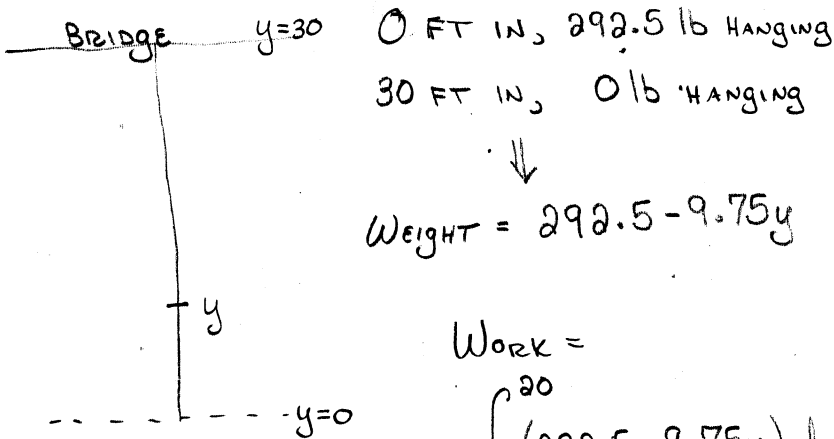 BRIDGE y=30
0 FT IN, 292.5 lb HANGING
30 FT IN, 0 lb HANGING
⇓
WEIGHT = 292.5 - 9.75y
y
WORK =
∫ 20
y=0